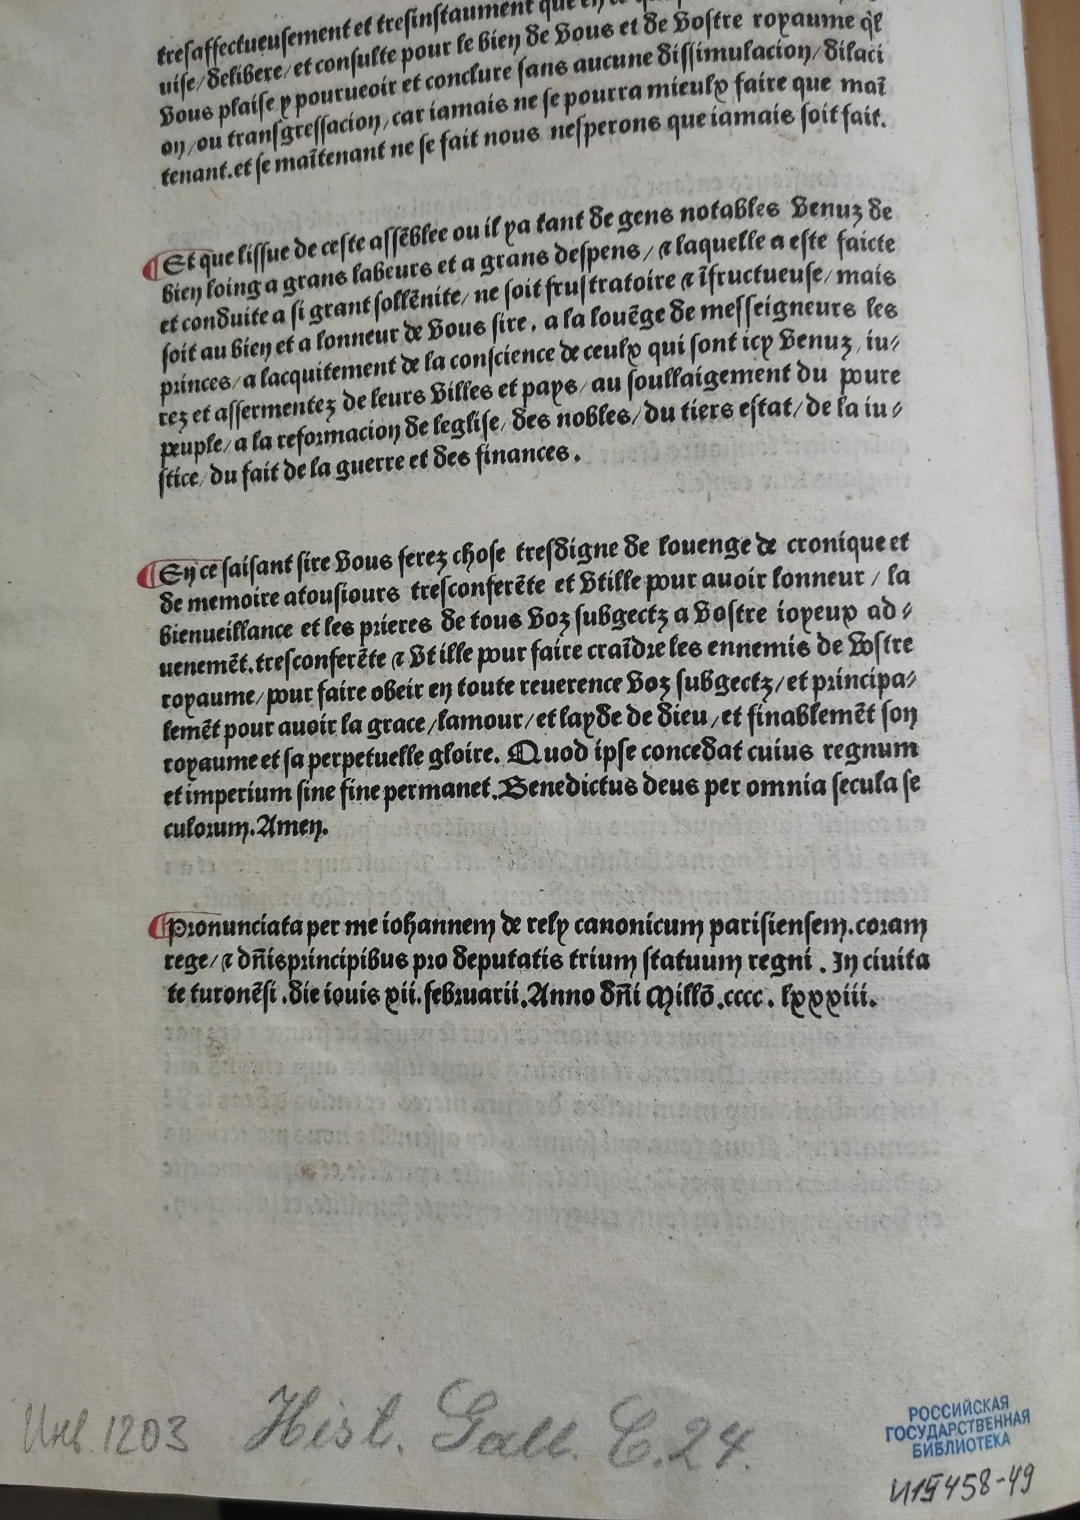 tresaffectueusement et tresinstaument que
uise/delibere/et consulte pour le bien de Vous et de Vostre royaume q̃l
Vous plaise y pourueoir et conclure sans aucune dissimulacion/dilaci
on/ou transgressacion/car iamais ne se pourra mieulx faire que maĩ
tenant.et se maĩtenant ne se fait nous nesperons que iamais soit fait.
¶Et que lissue de ceste assẽblee ou il ya tant de gens notables Venuz de
bien loing a grans labeurs et a grans despens/⁊ laquelle a este faicte
et conduite a si grant sollẽnite/ne soit frustratoire ⁊ ĩfructueuse/mais
soit au bien et a lonneur de Vous sire. a la louẽge de messeigneurs les
princes/a lacquitement de la conscience de ceulx qui sont icy Venuz/iu⸗
rez et assermentez de leurs Villes et pays/au soullaigement du poure
peuple/a la reformacion de leglise/des nobles/du tiers estat/de la iu⸗
stice/du fait de la guerre et des finances.
¶En ce faisant sire Vous ferez chose tresdigne de louenge de cronique et
de memoire atousiours tresconferẽte et Vtille pour auoir lonneur/la
bienueillance et les prieres de tous Voz subgectz a Vostre ioyeux ad⸗
uenemẽt.tresconferẽte ⁊ Vtille pour faire craĩdre les ennemis de Vostre
royaume/pour faire obeir en toute reuerence Voz subgectz/et principa⸗
lemẽt pour auoir la grace/lamour/et layde de dieu/et finablemẽt son
royaume et sa perpetuelle gloire. Quod ipse concedat cuius regnum
et imperium sine fine permanet.Benedictus deus per omnia secula se
culorum.Amen.
¶Pronunciata per me iohannem de rely canonicum parisiensem.coram
rege/⁊ dñis principibus pro deputatis trium statuum regni. In ciuita
te turonẽsi.die iouis xii.februarii.Anno dñi Millõ.cccc. lxxxiii.
Инв. 1203 Hist. Gall. C.24.
РОССИЙСКАЯ
ГОСУДАРСТВЕННАЯ
БИБЛИОТЕКА